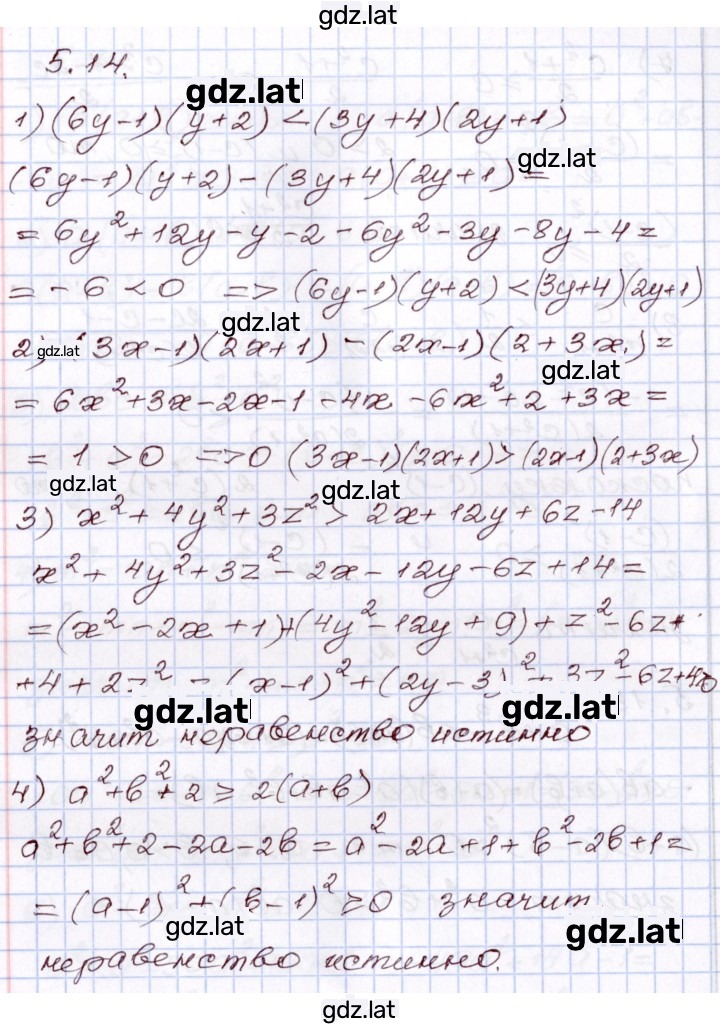 gdz.lat
5.14.
gdz.lat
1) (6y-1)(y+2) < (3y+4)(2y+1)
gdz.lat
(6y-1)(y+2) - (3y+4)(2y+1) =
= 6y² + 12y - y - 2 - 6y² - 3y - 8y - 4 =
= -6 < 0 => (6y-1)(y+2) < (3y+4)(2y+1)
gdz.lat
2) gdz.lat 3x-1)(2x+1) - (2x-1)(2+3x) =
gdz.lat
= 6x² + 3x - 2x - 1 - 4x - 6x² + 2 + 3x =
= 1 > 0 => 0 (3x-1)(2x+1) > (2x-1)(2+3x)
gdz.lat
gdz.lat
3) x² + 4y² + 3z² > 2x + 12y + 6z - 14
x² + 4y² + 3z² - 2x - 12y - 6z + 14 =
= (x² - 2x + 1) + (4y² - 12y + 9) + z² - 6z +
+ 4 + 2z² = (x-1)² + (2y-3)² + 3z² - 6z + 4 > 0
gdz.lat
gdz.lat
значит неравенство истинно
4) a² + b² + 2 ≥ 2(a+b)
a² + b² + 2 - 2a - 2b = a² - 2a + 1 + b² - 2b + 1 =
= (a-1)² + (b-1)² ≥ 0 значит
gdz.lat
gdz.lat
неравенство истинно.
gdz.lat